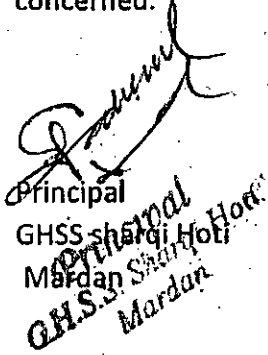 concerned.
Principal
GHSS sharqi Hoti
Mardan
Principal
G.H.S.S. Sharqi Hoti
Mardan